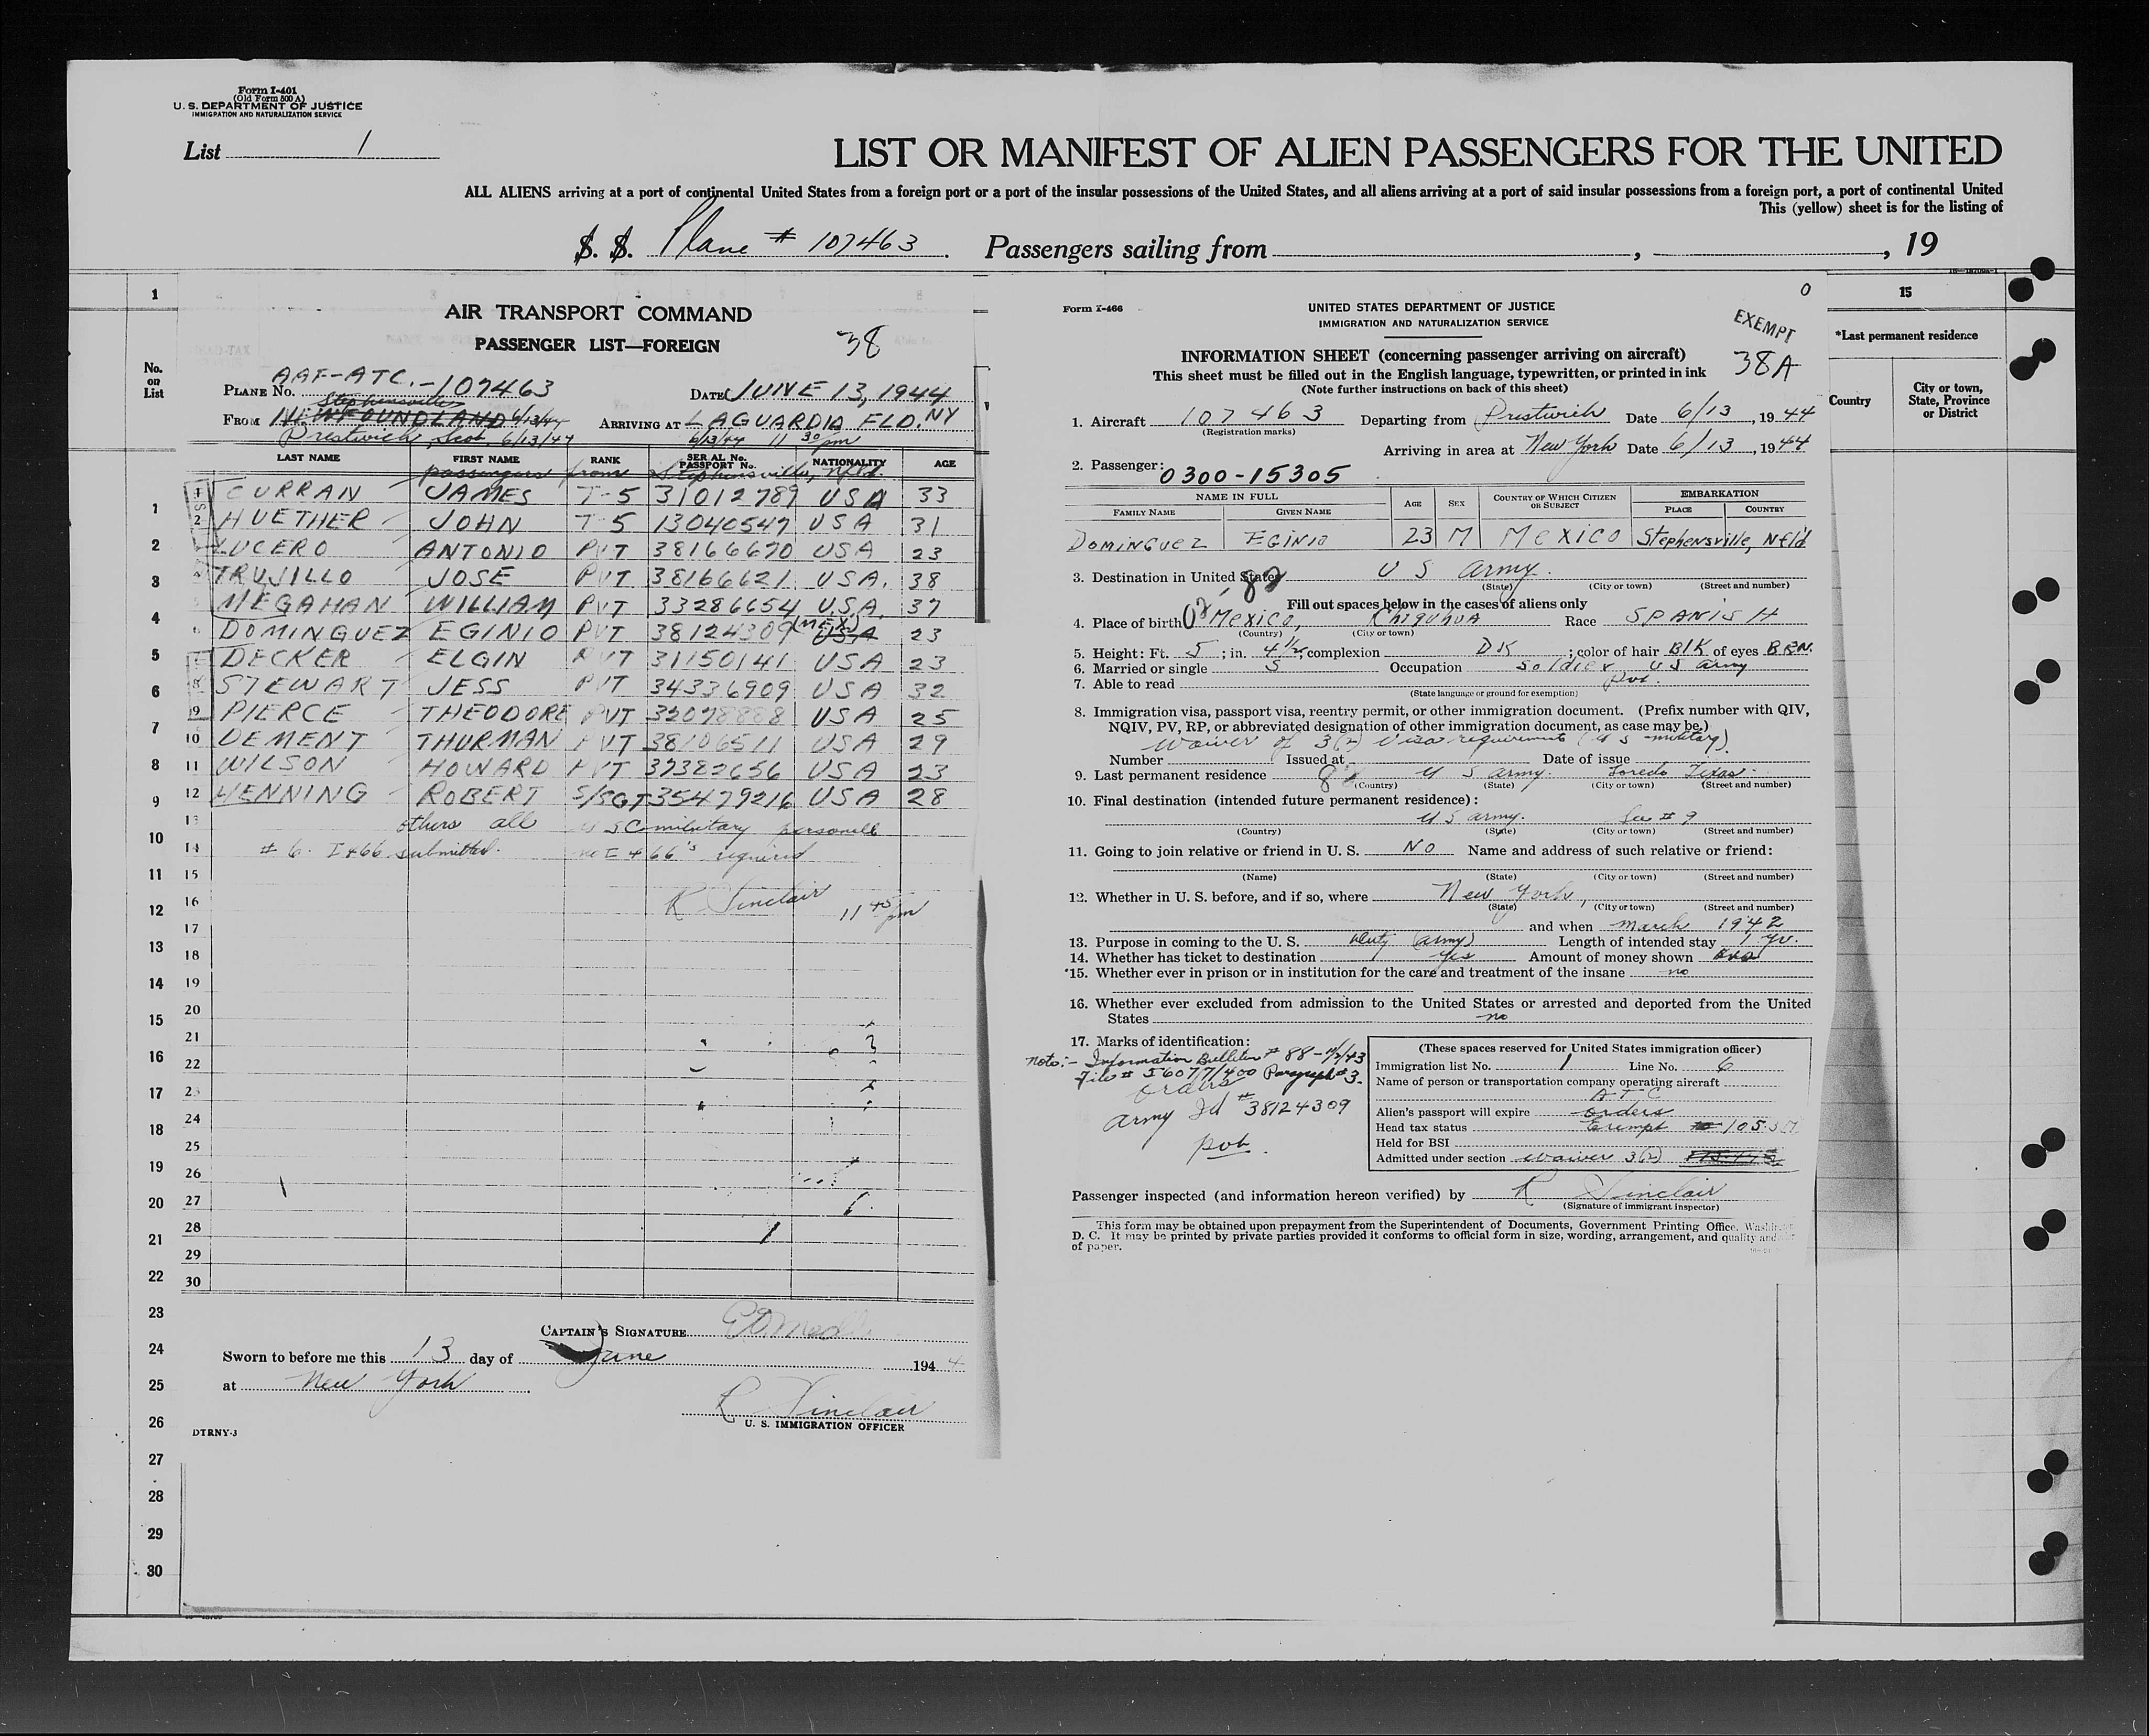 Form I-401
(Old Form 500 A)
U. S. DEPARTMENT OF JUSTICE
IMMIGRATION AND NATURALIZATION SERVICE
List 1
LIST OR MANIFEST OF ALIEN PASSENGERS FOR THE UNITED
ALL ALIENS arriving at a port of continental United States from a foreign port or a port of the insular possessions of the United States, and all aliens arriving at a port of said insular possessions from a foreign port, a port of continental United
This (yellow) sheet is for the listing of
S. S. Plane # 107463. Passengers sailing from , , 19
1
No. on List
AIR TRANSPORT COMMAND
PASSENGER LIST—FOREIGN
38
PLANE No. AAF-ATC.-107463 DATE JUNE 13, 1944
Stephensville
FROM NEWFOUNDLAND 6/13/44 ARRIVING AT LAGUARDIA FLD. NY
Prestwich, Scot. 6/13/44 6/13/44 11 30 pm
LAST NAME FIRST NAME RANK SERIAL No. PASSPORT No. NATIONALITY AGE
passengers from Stephensville, Nfld.
1 CURRAN JAMES T-5 31012789 USA 33
2 HUETHER JOHN T-5 13040547 USA 31
LUCERO ANTONIO PVT 38166670 USA 23
4 TRUJILLO JOSE PVT 38166621 USA. 38
5 MEGAHAN WILLIAM PVT 33286654 U.S.A. 37
6 DOMINGUEZ EGINIO PVT 38124309 (MEX) USA 23
DECKER ELGIN PVT 31150141 USA 23
8 STEWART JESS PVT 34336909 USA 32
9 PIERCE THEODORE PVT 32078888 USA 25
10 DEMENT THURMAN PVT 38106511 USA 29
11 WILSON HOWARD PVT 37382656 USA 23
12 HENNING ROBERT S/SGT 35479216 USA 28
13 others all USC military personell
14 # 6. I 466 submitted. no I 466's required
15
16 R Sinclair 11 45 pm
17
18
19
20
21
22
23
24
25
26
27
28
29
30
1
2
3
4
5
6
7
8
9
10
11
12
13
14
15
16
17
18
19
20
21
22
23
24
25
26
27
28
29
30
CAPTAIN'S SIGNATURE
Sworn to before me this 13 day of June 1944
at New York
R Sinclair
U. S. IMMIGRATION OFFICER
DTRNY-3
Form I-466
UNITED STATES DEPARTMENT OF JUSTICE
IMMIGRATION AND NATURALIZATION SERVICE
0
EXEMPT
38A
INFORMATION SHEET (concerning passenger arriving on aircraft)
This sheet must be filled out in the English language, typewritten, or printed in ink
(Note further instructions on back of this sheet)
1. Aircraft 107463 Departing from Prestwich Date 6/13, 1944
(Registration marks)
Arriving in area at New York Date 6/13, 1944
2. Passenger: 0300-15305
NAME IN FULL AGE SEX COUNTRY OF WHICH CITIZEN OR SUBJECT EMBARKATION
FAMILY NAME GIVEN NAME PLACE COUNTRY
DOMINGUEZ EGINIO 23 M MEXICO Stephensville, Nfld
3. Destination in United States U S army.
(State) (City or town) (Street and number)
82
Fill out spaces below in the cases of aliens only
4. Place of birth Mexico, Chiquhua Race SPANISH
(Country) (City or town)
5. Height: Ft. 5; in. 4 1/2; complexion DK; color of hair BlK of eyes BRN.
6. Married or single S Occupation Soldier U S army
7. Able to read Pvt.
(State language or ground for exemption)
8. Immigration visa, passport visa, reentry permit, or other immigration document. (Prefix number with QIV, NQIV, PV, RP, or abbreviated designation of other immigration document, as case may be.)
Waiver of 3(2) visa requirements (U S military)
Number Issued at Date of issue
9. Last permanent residence U S army. Loredo Texas
(Country) (State) (City or town) (Street and number)
10. Final destination (intended future permanent residence):
U S army. See # 9
(Country) (State) (City or town) (Street and number)
11. Going to join relative or friend in U. S. NO Name and address of such relative or friend:
(Name) (State) (City or town) (Street and number)
12. Whether in U. S. before, and if so, where New York,
(State) (City or town) (Street and number)
and when March 1942
13. Purpose in coming to the U. S. duty (army) Length of intended stay 1 yr.
14. Whether has ticket to destination yes Amount of money shown
*15. Whether ever in prison or in institution for the care and treatment of the insane no
16. Whether ever excluded from admission to the United States or arrested and deported from the United
States no
17. Marks of identification:
note:- Information Bulletin # 88-
File # 56077/400 Paragraph # 3-
orders
Army Id # 38124309
(These spaces reserved for United States immigration officer)
Immigration list No. 1 Line No. 6
Name of person or transportation company operating aircraft
A T C
Alien's passport will expire orders
Head tax status Exempt
Held for BSI
Admitted under section waiver 3(2)
Passenger inspected (and information hereon verified) by R Sinclair
(Signature of immigrant inspector)
This form may be obtained upon prepayment from the Superintendent of Documents, Government Printing Office, Washington
D. C. It may be printed by private parties provided it conforms to official form in size, wording, arrangement, and quality and
of paper.
15
*Last permanent residence
Country City or town, State, Province or District